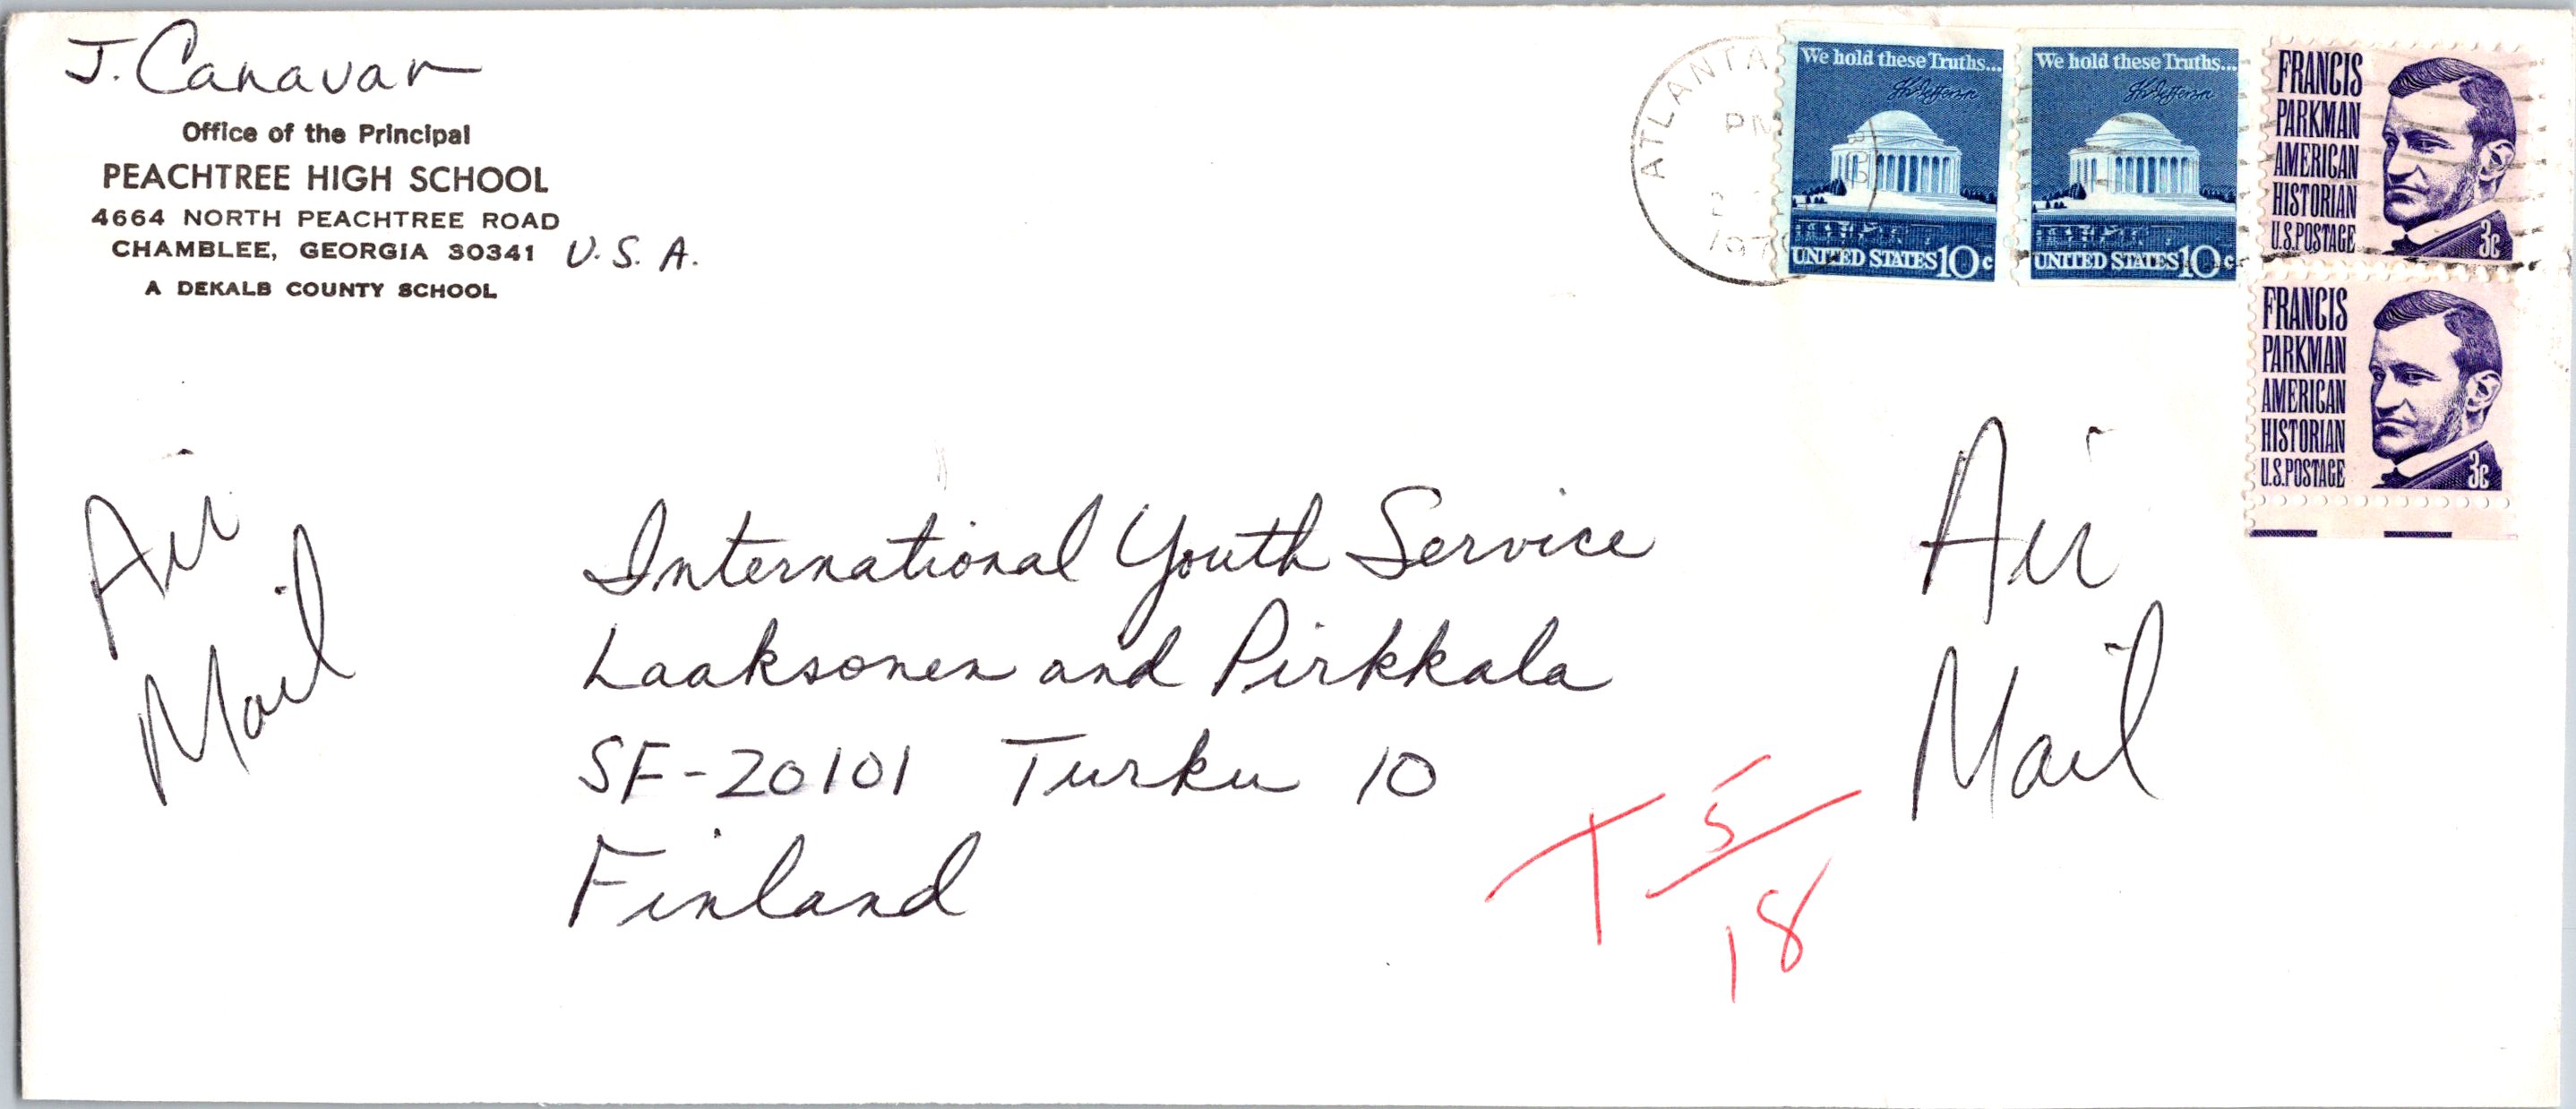 J. Canavan
Office of the Principal
PEACHTREE HIGH SCHOOL
4664 NORTH PEACHTREE ROAD
CHAMBLEE, GEORGIA 30341 U.S.A.
A DEKALB COUNTY SCHOOL
ATLANTA
PM
We hold these Truths...
UNITED STATES 10c
We hold these Truths...
UNITED STATES 10c
FRANCIS
PARKMAN
AMERICAN
HISTORIAN
U.S. POSTAGE 3c
FRANCIS
PARKMAN
AMERICAN
HISTORIAN
U.S. POSTAGE 3c
Air
Mail
International Youth Service
Laaksonen and Pirkkala
SF-20101 Turku 10
Finland
Air
Mail
T 5/18